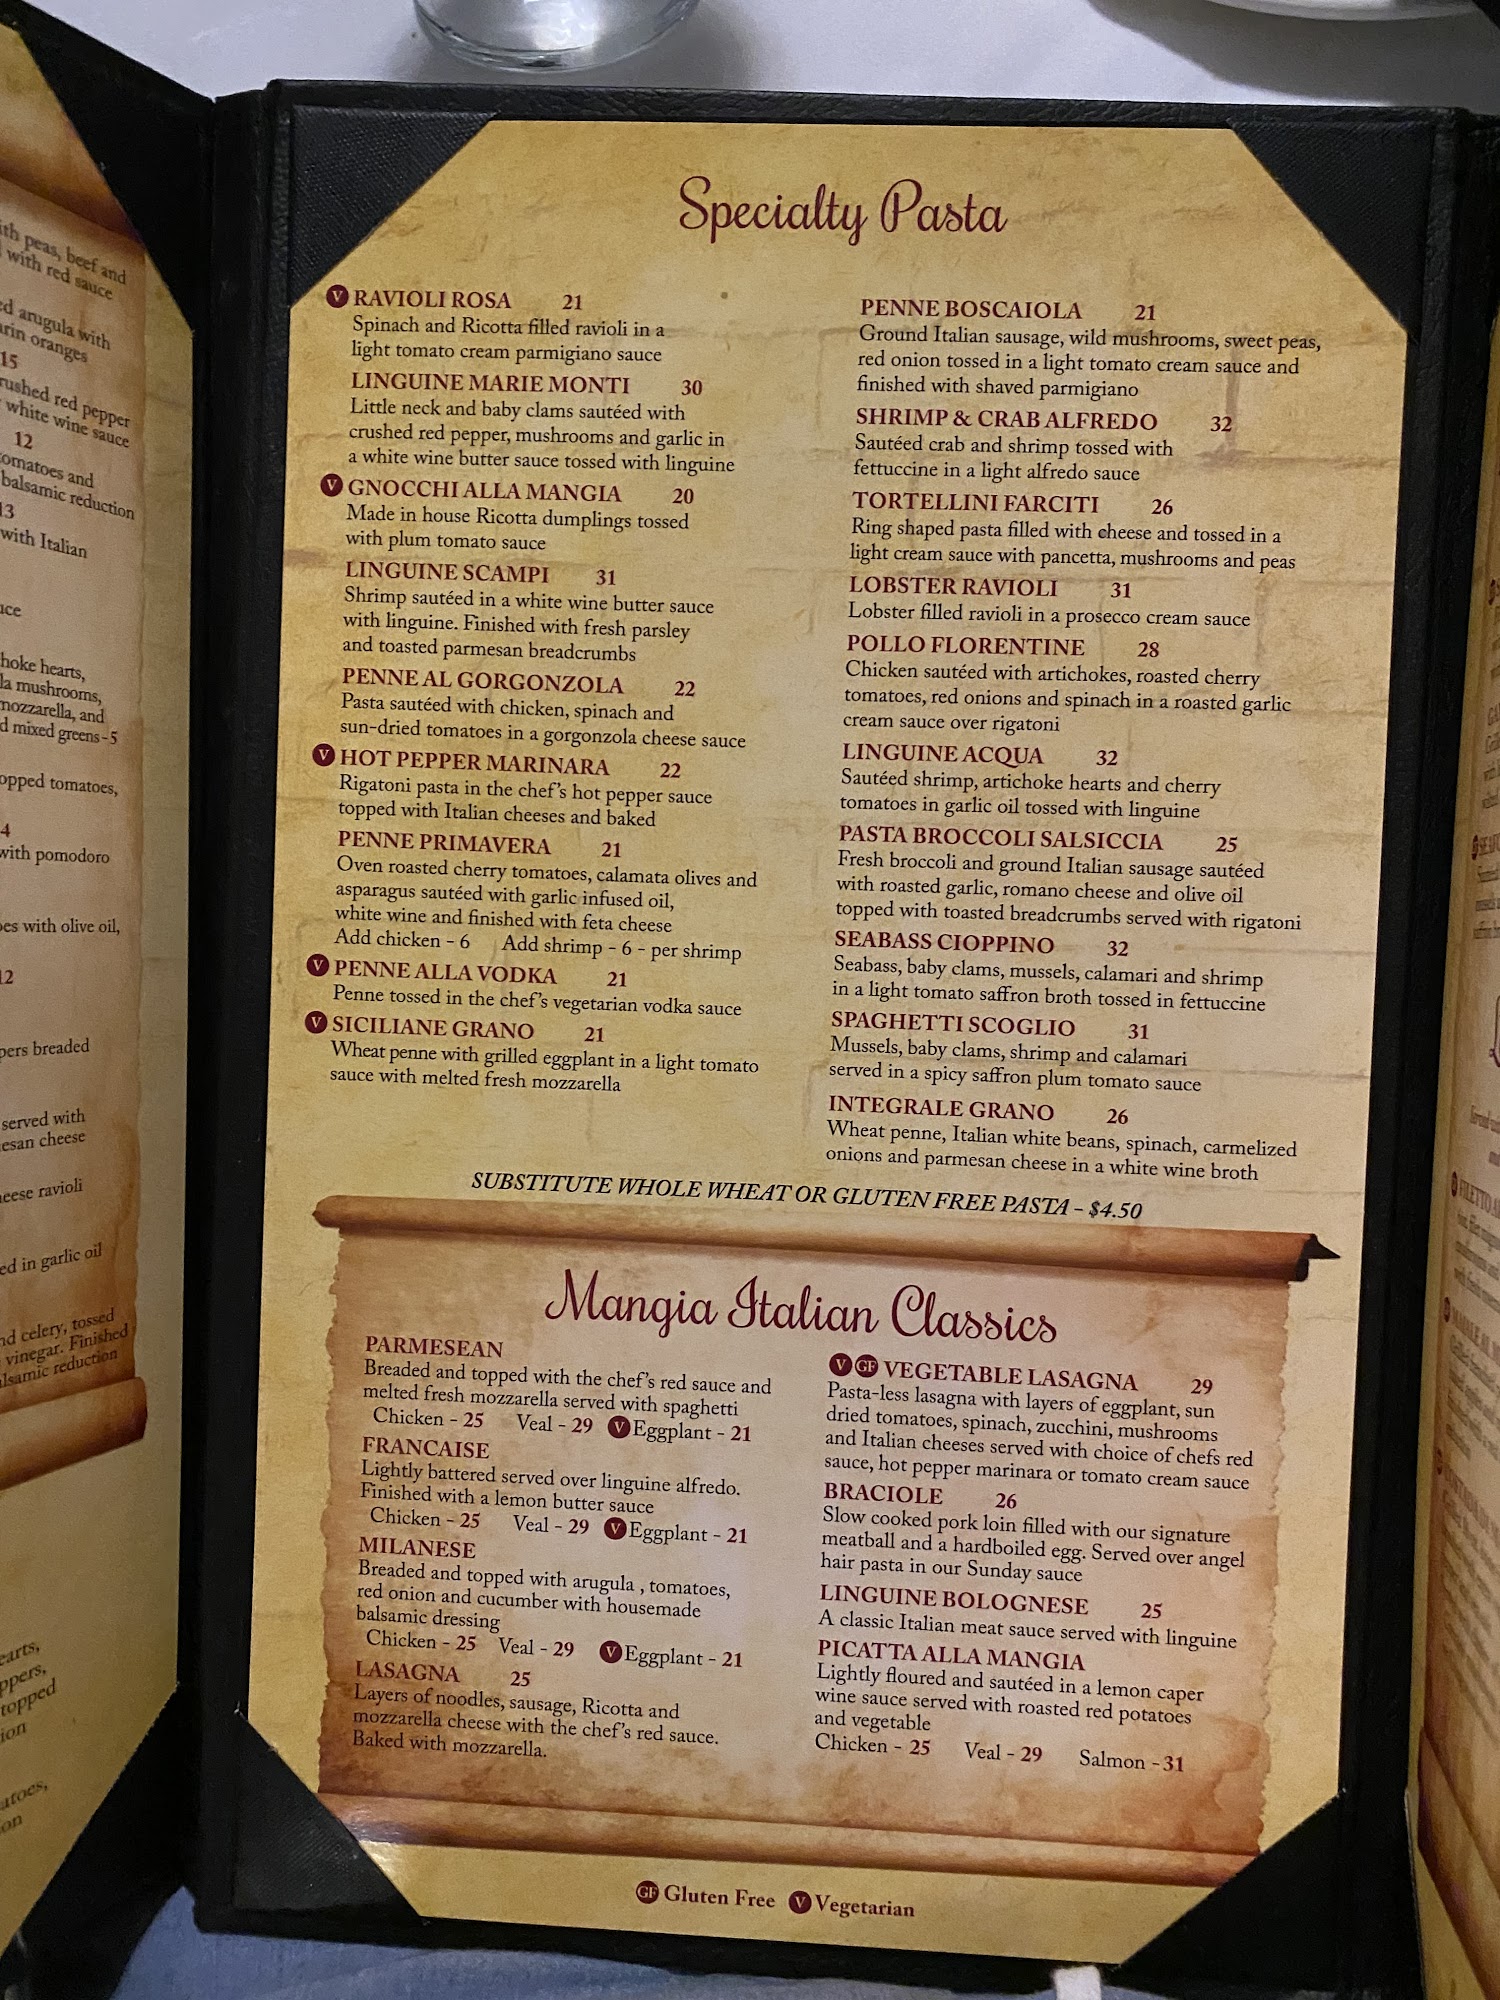 Specialty Pasta
V RAVIOLI ROSA 21
Spinach and Ricotta filled ravioli in a
light tomato cream parmigiano sauce
LINGUINE MARIE MONTI 30
Little neck and baby clams sautéed with
crushed red pepper, mushrooms and garlic in
a white wine butter sauce tossed with linguine
V GNOCCHI ALLA MANGIA 20
Made in house Ricotta dumplings tossed
with plum tomato sauce
LINGUINE SCAMPI 31
Shrimp sautéed in a white wine butter sauce
with linguine. Finished with fresh parsley
and toasted parmesan breadcrumbs
PENNE AL GORGONZOLA 22
Pasta sautéed with chicken, spinach and
sun-dried tomatoes in a gorgonzola cheese sauce
V HOT PEPPER MARINARA 22
Rigatoni pasta in the chef's hot pepper sauce
topped with Italian cheeses and baked
PENNE PRIMAVERA 21
Oven roasted cherry tomatoes, calamata olives and
asparagus sautéed with garlic infused oil,
white wine and finished with feta cheese
Add chicken - 6 Add shrimp - 6 - per shrimp
V PENNE ALLA VODKA 21
Penne tossed in the chef's vegetarian vodka sauce
V SICILIANE GRANO 21
Wheat penne with grilled eggplant in a light tomato
sauce with melted fresh mozzarella
PENNE BOSCAIOLA 21
Ground Italian sausage, wild mushrooms, sweet peas,
red onion tossed in a light tomato cream sauce and
finished with shaved parmigiano
SHRIMP & CRAB ALFREDO 32
Sautéed crab and shrimp tossed with
fettuccine in a light alfredo sauce
TORTELLINI FARCITI 26
Ring shaped pasta filled with cheese and tossed in a
light cream sauce with pancetta, mushrooms and peas
LOBSTER RAVIOLI 31
Lobster filled ravioli in a prosecco cream sauce
POLLO FLORENTINE 28
Chicken sautéed with artichokes, roasted cherry
tomatoes, red onions and spinach in a roasted garlic
cream sauce over rigatoni
LINGUINE ACQUA 32
Sautéed shrimp, artichoke hearts and cherry
tomatoes in garlic oil tossed with linguine
PASTA BROCCOLI SALSICCIA 25
Fresh broccoli and ground Italian sausage sautéed
with roasted garlic, romano cheese and olive oil
topped with toasted breadcrumbs served with rigatoni
SEABASS CIOPPINO 32
Seabass, baby clams, mussels, calamari and shrimp
in a light tomato saffron broth tossed in fettuccine
SPAGHETTI SCOGLIO 31
Mussels, baby clams, shrimp and calamari
served in a spicy saffron plum tomato sauce
INTEGRALE GRANO 26
Wheat penne, Italian white beans, spinach, carmelized
onions and parmesan cheese in a white wine broth
SUBSTITUTE WHOLE WHEAT OR GLUTEN FREE PASTA - $4.50
Mangia Italian Classics
PARMESEAN
Breaded and topped with the chef's red sauce and
melted fresh mozzarella served with spaghetti
Chicken - 25 Veal - 29 V Eggplant - 21
FRANCAISE
Lightly battered served over linguine alfredo.
Finished with a lemon butter sauce
Chicken - 25 Veal - 29 V Eggplant - 21
MILANESE
Breaded and topped with arugula , tomatoes,
red onion and cucumber with housemade
balsamic dressing
Chicken - 25 Veal - 29 V Eggplant - 21
LASAGNA 25
Layers of noodles, sausage, Ricotta and
mozzarella cheese with the chef's red sauce.
Baked with mozzarella.
V GF VEGETABLE LASAGNA 29
Pasta-less lasagna with layers of eggplant, sun
dried tomatoes, spinach, zucchini, mushrooms
and Italian cheeses served with choice of chefs red
sauce, hot pepper marinara or tomato cream sauce
BRACIOLE 26
Slow cooked pork loin filled with our signature
meatball and a hardboiled egg. Served over angel
hair pasta in our Sunday sauce
LINGUINE BOLOGNESE 25
A classic Italian meat sauce served with linguine
PICATTA ALLA MANGIA
Lightly floured and sautéed in a lemon caper
wine sauce served with roasted red potatoes
and vegetable
Chicken - 25 Veal - 29 Salmon - 31
GF Gluten Free V Vegetarian
with peas, beef and
with red sauce
arugula with
oranges
15
crushed red pepper
white wine sauce
12
tomatoes and
balsamic reduction
13
with Italian
hearts,
mushrooms,
mozzarella, and
mixed greens - 5
tomatoes,
with pomodoro
with olive oil,
12
breaded
served with
cheese
ravioli
in garlic oil
celery, tossed
vinegar. Finished
reduction
topped